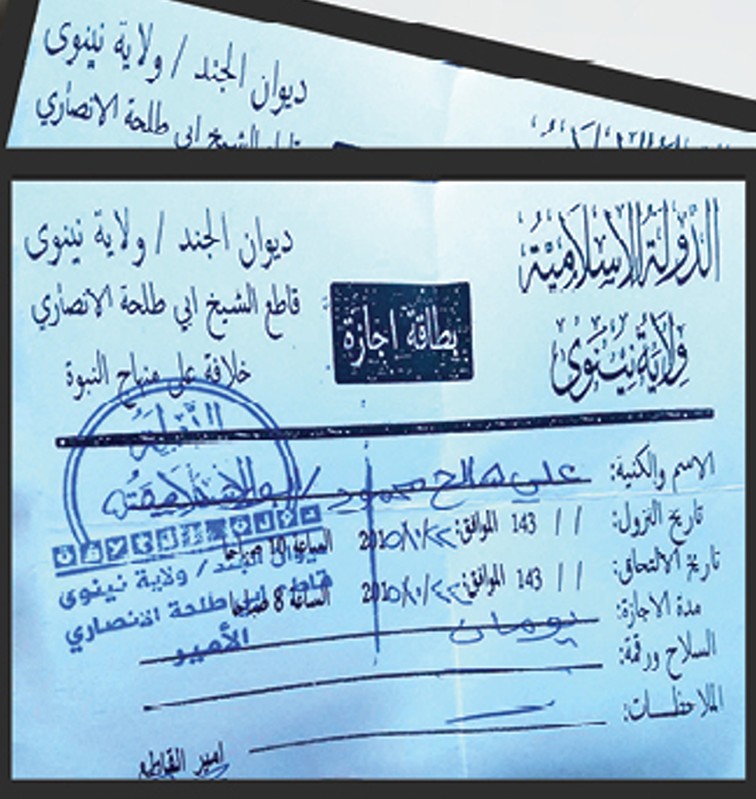 ديوان الجند / ولاية نينوى
قاطع الشيخ ابي طلحة الانصاري
الدولة الاسلامية
ولاية نينوى
ديوان الجند / ولاية نينوى
قاطع الشيخ ابي طلحة الانصاري
خلافة على منهاج النبوة
بطاقة اجازة
الاسم والكنية: علي صالح محمود /
تاريخ النزول: / / 143 الموافق: الساعة 10 صباحا
تاريخ الالتحاق: / / 143 الموافق: الساعة 8 صباحا
مدة الاجازة: يومان
السلاح ورقمة:
الملاحظات:
امير القاطع
ديوان الجند / ولاية نينوى
قاطع ابي طلحة الانصاري
الأمير